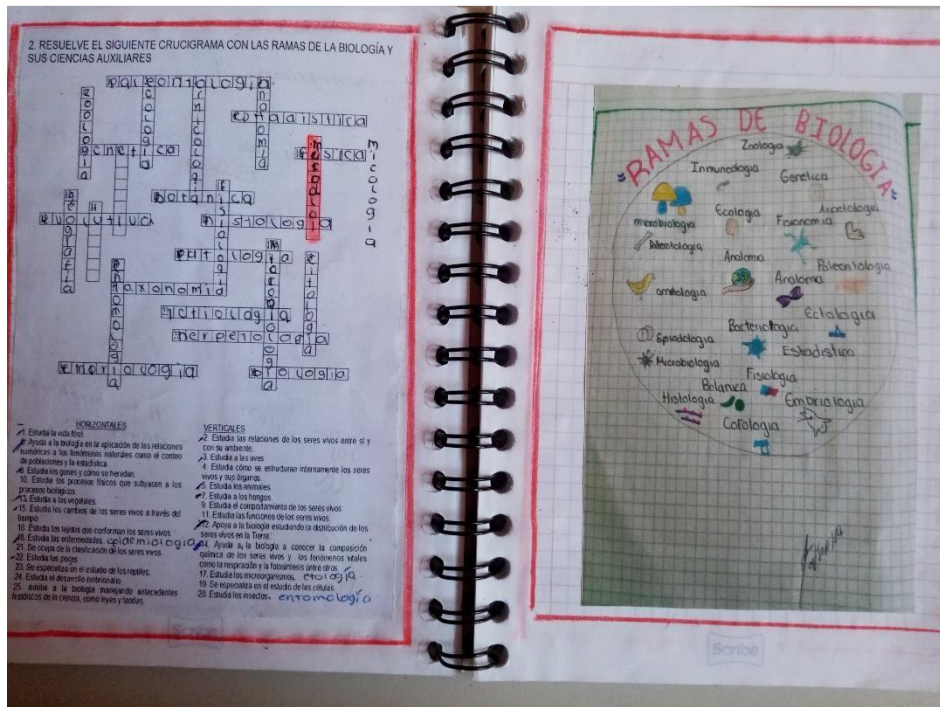 2. RESUELVE EL SIGUIENTE CRUCIGRAMA CON LAS RAMAS DE LA BIOLOGÍA Y
SUS CIENCIAS AUXILIARES
paleontologia
zoologia
ecologia
estadistica
fisica
micologia
genetica
botanica
evolutiva
histologia
patologia
taxonomia
ictiologia
herpetologia
citologia
HORIZONTALES
1. Estudia la vida fósil.
Ayuda a la biología en la aplicación de las relaciones
numéricas a los fenómenos naturales como el conteo
de poblaciones y la estadística.
8. Estudia los genes y cómo se heredan.
10. Estudia los procesos físicos que subyacen a los
procesos biológicos.
13. Estudia a los vegetales.
15. Estudia los cambios de los seres vivos a través del
tiempo
16. Estudia los tejidos que conforman los seres vivos
18. Estudia las enfermedades. epidemiologia
21. Se ocupa de la clasificación de los seres vivos
22. Estudia los peces
23. Se especializa en el estudio de los reptiles.
24. Estudia el desarrollo embrionario
25. auxilia a la biología manejando antecedentes
históricos de la ciencia, como leyes y teorías.
VERTICALES
2. Estudia las relaciones de los seres vivos entre sí y
con su ambiente.
3. Estudia a las aves
4. Estudia cómo se estructuran internamente los seres
vivos y sus órganos.
5. Estudia los animales.
7. Estudia a los hongos.
9. Estudia el comportamiento de los seres vivos
11. Estudia las funciones de los seres vivos.
12. Apoya a la biología estudiando la distribución de los
seres vivos en la Tierra.
14. Ayuda a, la biología a conocer la composición
química de los seres vivos y los fenómenos vitales
como la respiración y la fotosíntesis entre otros.
17. Estudia los microorganismos. etología
19. Se especializa en el estudio de las células.
20. Estudia los insectos. entomología
RAMAS DE BIOLOGIA
Zoologia
Inmunologia
Genetica
microbiologia
Ecologia
Fisionomia
Anatoma
Paleontologia
ornitologia
Anatoma
Ectologia
Bacteriologia
Estadistica
Microbiologia
Fisiologia
Botanica
Histologia
Embriologia
Scribe